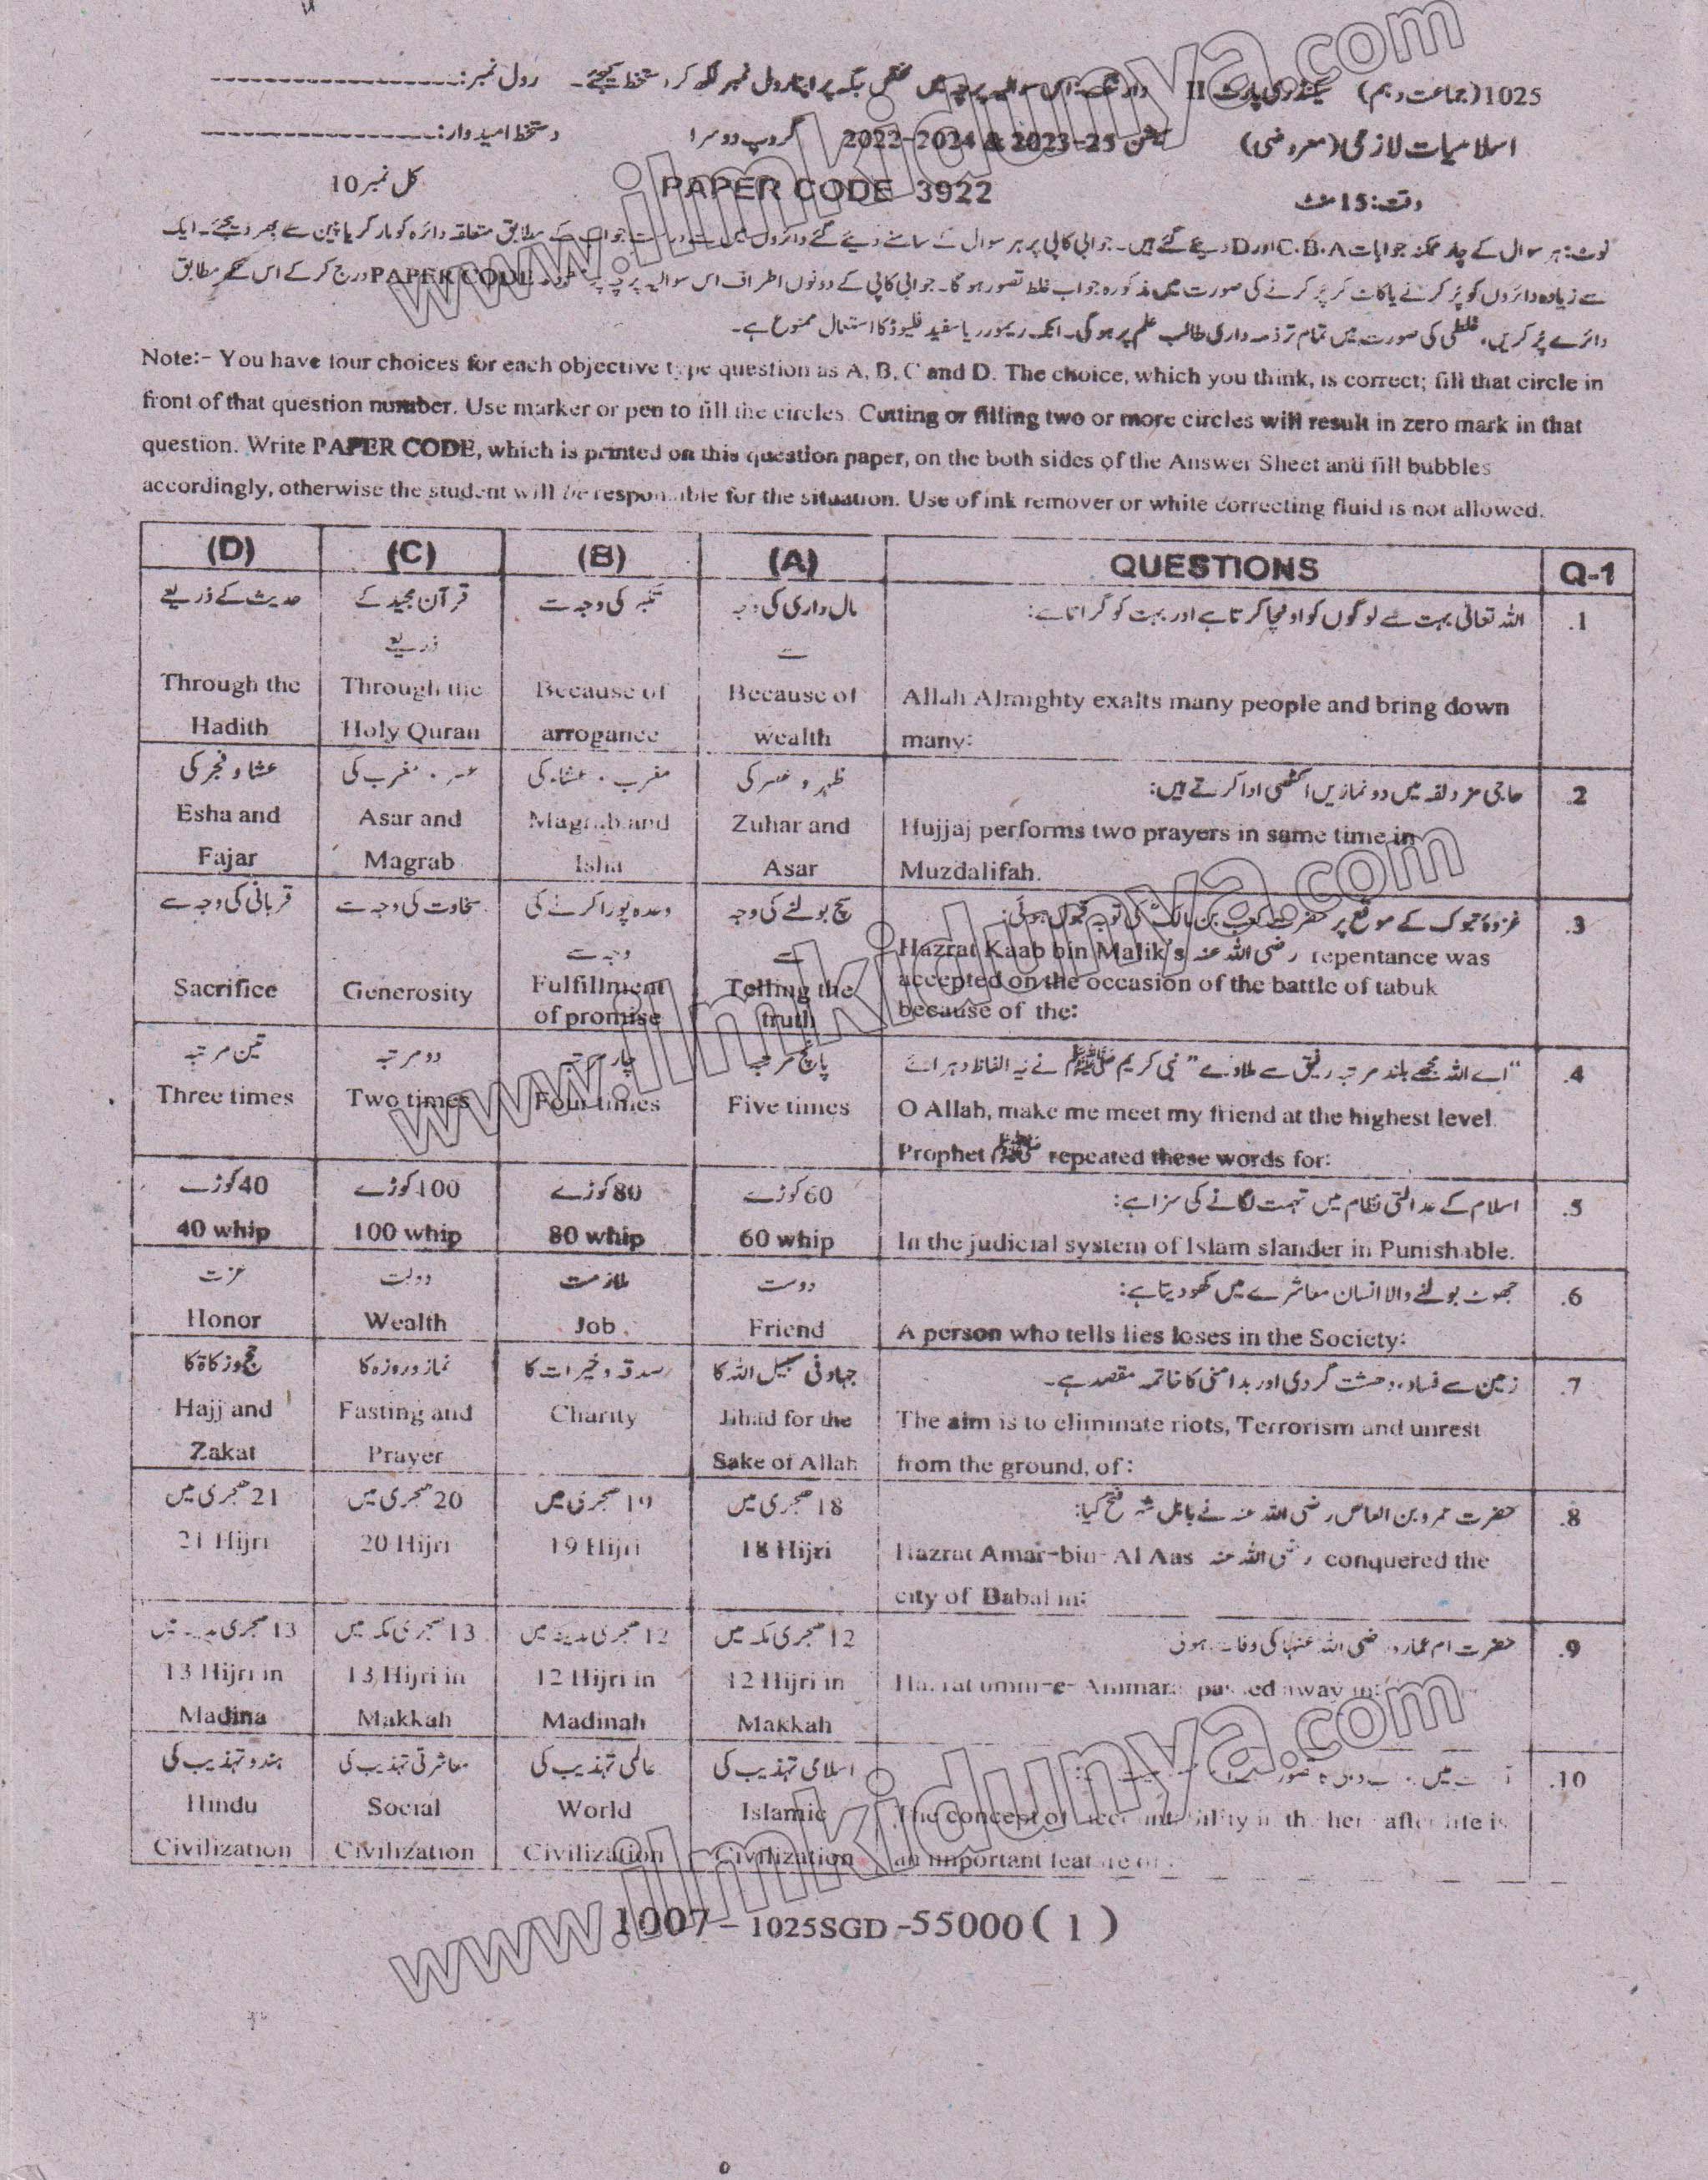 1025(جماعت دہم) سیکنڈری پارٹ II وارننگ: اس سوالیہ پرچہ میں مختص جگہ پر اپنا رول نمبر لکھ کر دستخط کیجئے۔ رول نمبر: --------------------
اسلامیات لازمی (معروضی) سیشن 2022-2024 & 2023-25 گروپ دوسرا دستخط امیدوار: --------------------
وقت: 15 منٹ PAPER CODE 3922 کل نمبر 10
نوٹ: ہر سوال کے چار ممکنہ جوابات C، B، A اور D دیئے گئے ہیں۔ جوابی کاپی پر ہر سوال کے سامنے دیئے گئے دائروں میں سے درست جواب کے مطابق متعلقہ دائرہ کو مارکر یا پین سے بھر دیجئے۔ ایک
سے زیادہ دائروں کو پُر کرنے یا کاٹ کر پُر کرنے کی صورت میں مذکورہ جواب غلط تصور ہو گا۔ جوابی کاپی کے دونوں اطراف اس سوالیہ پرچہ پر PAPER CODE درج کر کے اس کے مطابق
دائرے پُر کریں، غلطی کی صورت میں تمام تر ذمہ داری طالب علم پر ہوگی۔ انک ریمور یا سفید فلیوڈ کا استعمال ممنوع ہے۔
Note:- You have four choices for each objective type question as A, B, C and D. The choice, which you think, is correct; fill that circle in
front of that question number. Use marker or pen to fill the circles. Cutting or filling two or more circles will result in zero mark in that
question. Write PAPER CODE, which is printed on this question paper, on the both sides of the Answer Sheet and fill bubbles
accordingly, otherwise the student will be responsible for the situation. Use of ink remover or white correcting fluid is not allowed.
(D) (C) (B) (A) QUESTIONS Q-1
.1 اللہ تعالیٰ بہت سے لوگوں کو اونچا کرتا ہے اور بہت کو گراتا ہے: مال داری کی وجہ سے تکبّر کی وجہ سے قرآن مجید کے ذریعے حدیث کے ذریعے
Allah Almighty exalts many people and bring down
many:
Because of
wealth
Because of
arrogance
Through the
Holy Quran
Through the
Hadith
.2 حاجی مزدلفہ میں دو نمازیں اکٹھی ادا کرتے ہیں: ظہر و عصر کی مغرب و عشاء کی عصر و مغرب کی عشا و فجر کی
Hujjaj performs two prayers in same time in
Muzdalifah.
Zuhar and
Asar
Magrab and
Isha
Asar and
Magrab
Esha and
Fajar
.3 غزوہ تبوک کے موقع پر حضرت کعب بن مالک کی توبہ قبول ہوئی: سچ بولنے کی وجہ سے وعدہ پورا کرنے کی وجہ سے سخاوت کی وجہ سے قربانی کی وجہ سے
Hazrat Kaab bin Malik's رضی اللہ عنہ repentance was
accepted on the occasion of the battle of tabuk
because of the:
Telling the
truth
Fulfillment
of promise
Generosity
Sacrifice
.4 "اے اللہ مجھے بلند مرتبہ رفیق سے ملا دے" نبی کریم ﷺ نے یہ الفاظ دہرائے پانچ مرتبہ چار مرتبہ دو مرتبہ تین مرتبہ
O Allah, make me meet my friend at the highest level.
Prophet ﷺ repeated these words for:
Five times
Four times
Two times
Three times
.5 اسلام کے عدالتی نظام میں تہمت لگانے کی سزا ہے: 60 کوڑے 80 کوڑے 100 کوڑے 40 کوڑے
In the judicial system of Islam slander in Punishable.
60 whip
80 whip
100 whip
40 whip
.6 جھوٹ بولنے والا انسان معاشرے میں کھو دیتا ہے: دوست ملازمت دولت عزت
A person who tells lies loses in the Society:
Friend
Job
Wealth
Honor
.7 زمین سے فساد، دہشت گردی اور بدامنی کا خاتمہ مقصد ہے۔ جہاد فی سبیل اللہ کا صدقہ و خیرات کا نماز و روزہ کا حج و زکاۃ کا
The aim is to eliminate riots, Terrorism and unrest
from the ground, of:
Jihad for the
Sake of Allah
Charity
Fasting and
Prayer
Hajj and
Zakat
.8 حضرت عمرو بن العاص رضی اللہ عنہ نے بابل شہر فتح کیا: 18 ہجری میں 19 ہجری میں 20 ہجری میں 21 ہجری میں
Hazrat Amar-bin-Al Aas رضی اللہ عنہ conquered the
city of Babal in:
18 Hijri
19 Hijri
20 Hijri
21 Hijri
.9 حضرت ام عمارہ رضی اللہ عنہا کی وفات ہوئی 12 ہجری مکہ میں 12 ہجری مدینہ میں 13 ہجری مکہ میں 13 ہجری مدینہ میں
Hazrat umm-e-Ammara passed away in:
12 Hijri in
Makkah
12 Hijri in
Madinah
13 Hijri in
Makkah
13 Hijri in
Madina
.10 میں تصور اسلامی تہذیب کی عالمی تہذیب کی معاشرتی تہذیب کی ہندو تہذیب کی
The concept of accountability in the here after life is
an important feature of
Islamic
Civilization
World
Civilization
Social
Civilization
Hindu
Civilization
1007 - 1025SGD -55000 ( 1 )
www.ilmkidunya.com
www.ilmkidunya.com
www.ilmkidunya.com